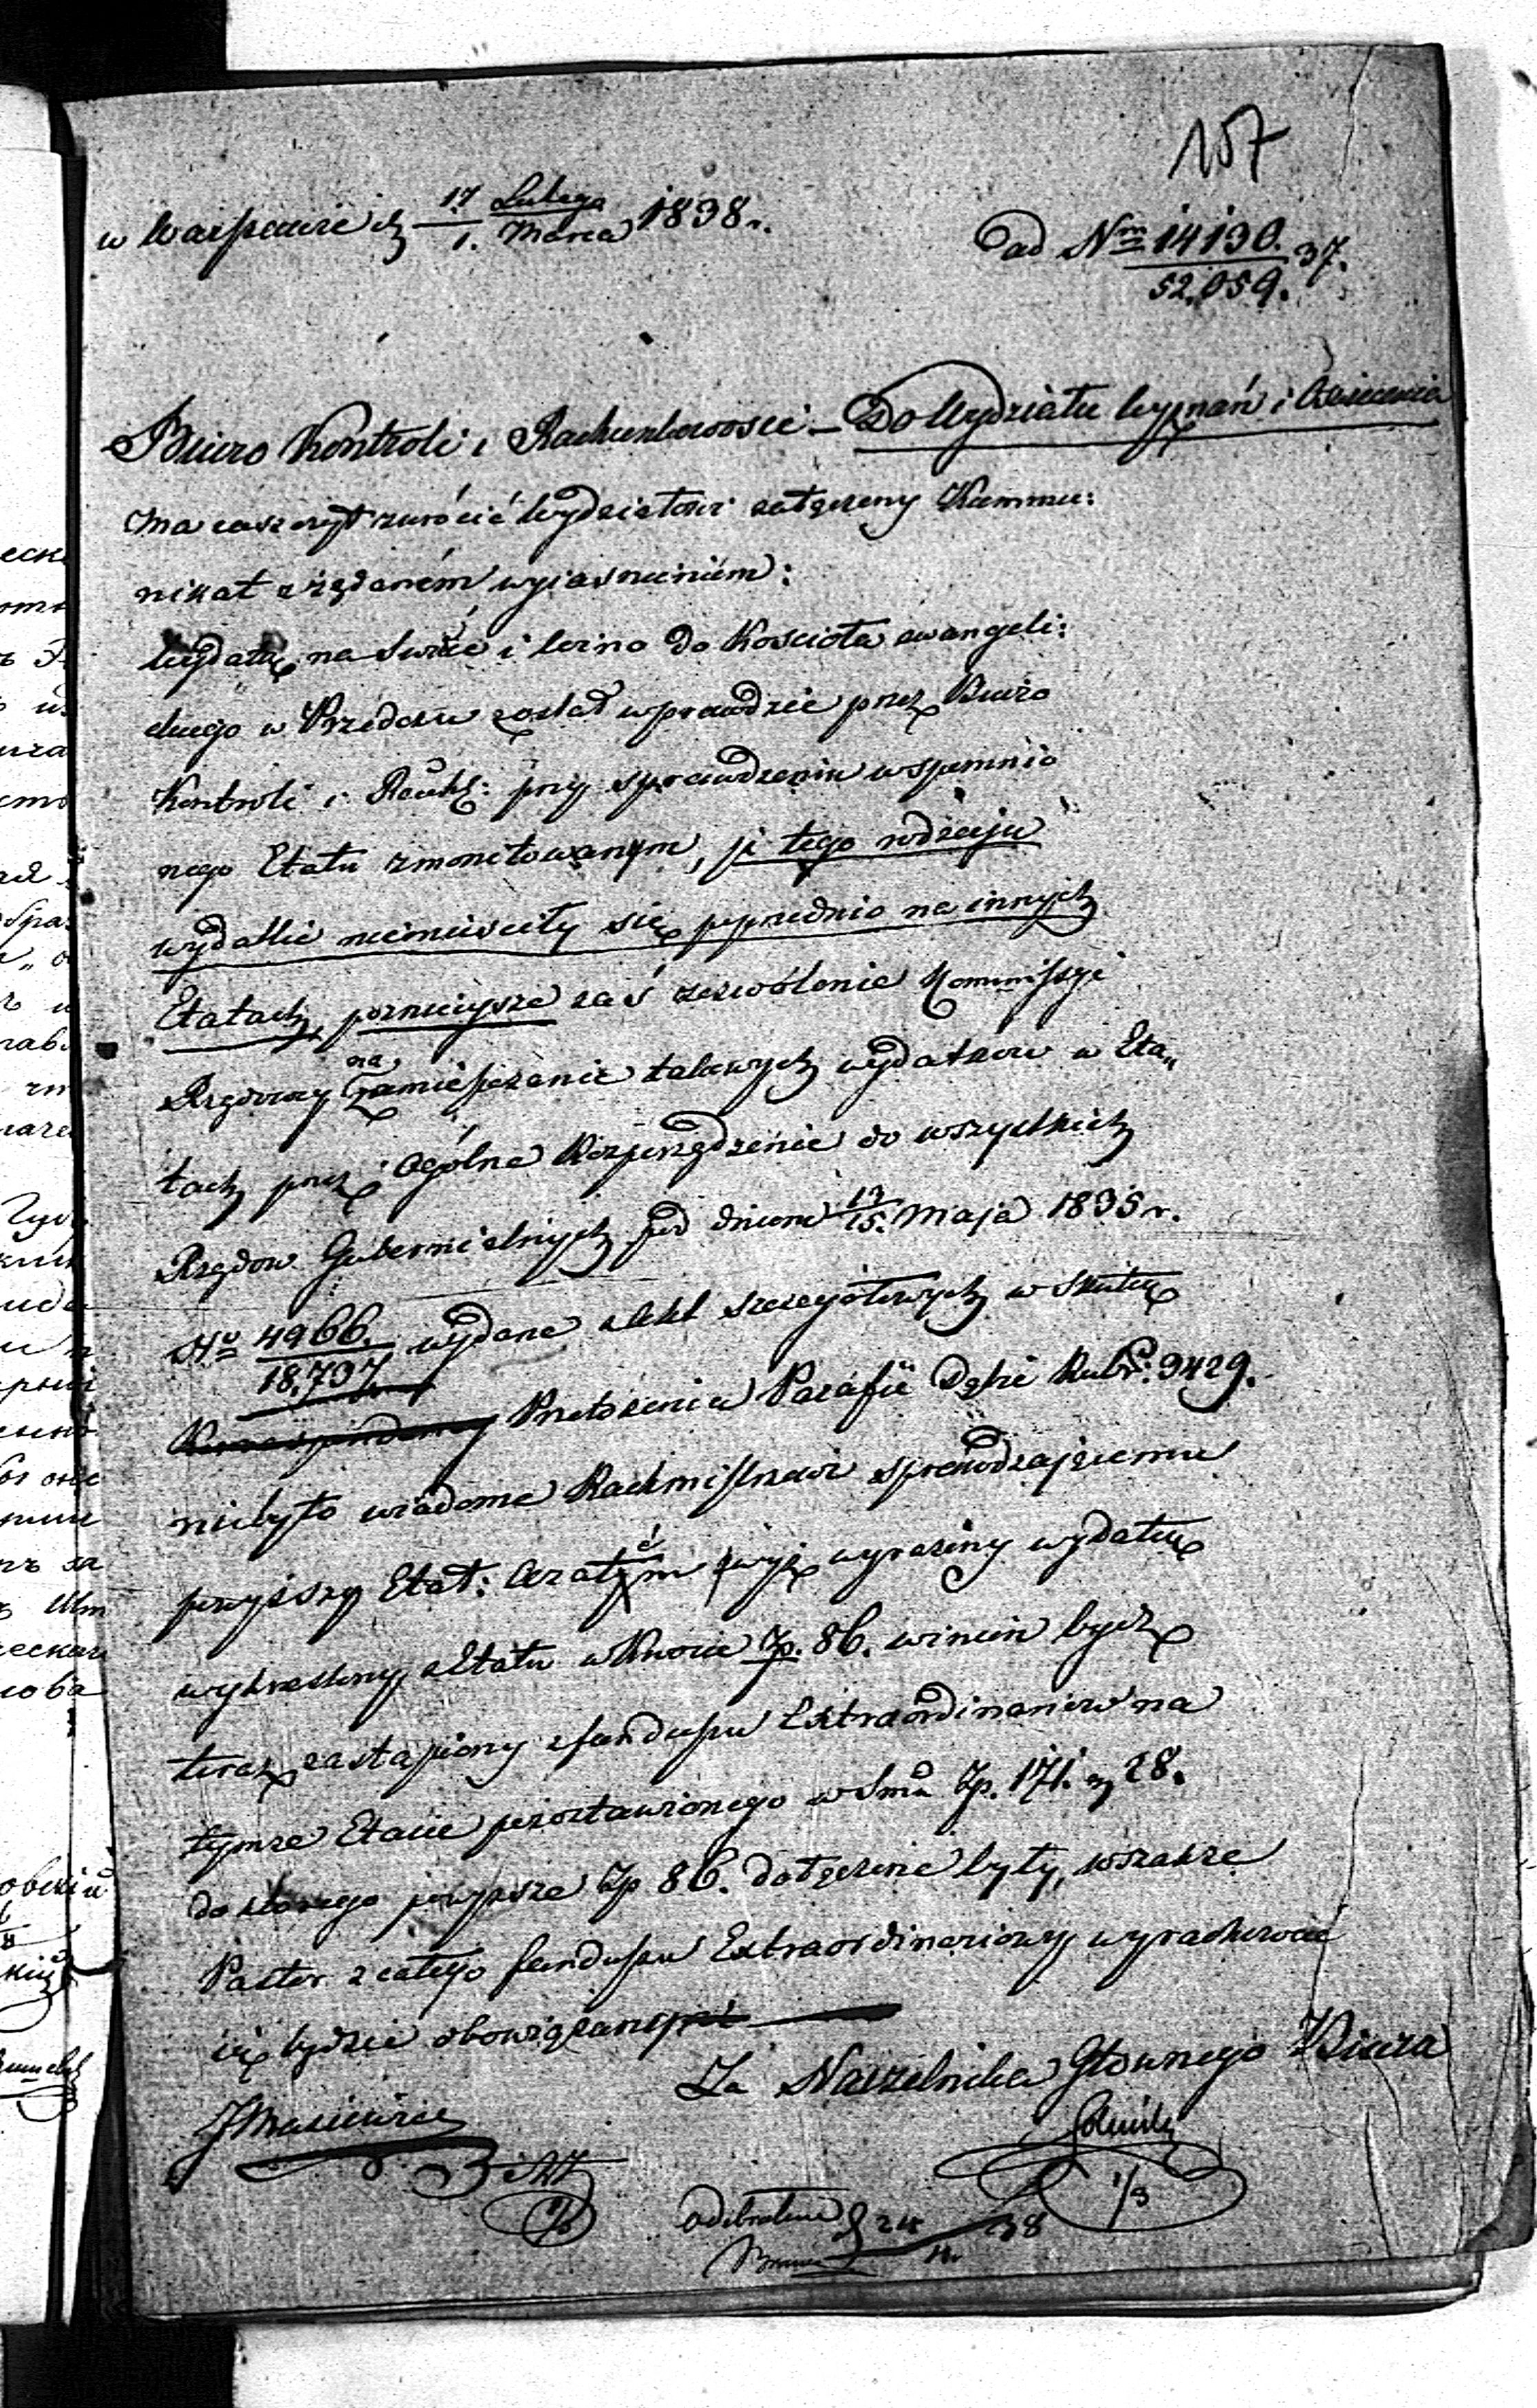 107
w Warszawie d. 17 Lutego / 1. Marca 1838 r.
ad Nrm 14130. / 52,059. 37.
Biuro Kontroli i Rachunkowosci – Do Wydziału Wyznań i Oświecenia
Ma zaszczyt zwrócić Wydziałowi załączony Kommu:
nikat z żądaném wyiasnieniem:
Wydatek na świéce i wino do Kościoła ewangeli:
ckiego w Przedczu został wprawdzie przez Biuro
Kontroli i Rachk: przy sprawdzeniu wspomnio
nego Etatu zmonitowanym, iż tego rodzaju
wydatki niemieściły się poprzednio na innych
Etatach, poznieysze zaś zezwolenie Kommissyi
Rządowey na zamieszczanie takowych wydatków w Eta„
tach przez Ogólne Rozporządzenie do wszystkich
Rządow Gubernialnych pod dniem 13/15. Maja 1835 r.
No 4966. / 18,797 wydane z Akt szczegółowych w skutku
Korrespondencyi Przełożenia Parafii Dąbie Rubr: 9429.
niebyło wiadome Rachmistrzowi sprawdzającemu
powyższy Etat: Azatém wyż wyrażony wydatek
wykreślony z Etatu w Kwocie Zp. 86. winien bydź
teraz zastąpiony z funduszu Extraordinariów na
tymże Etacie pozostawionego w Smie Zp. 171. g 28.
do którego powyższe Zp 86. dołączone były, wszakże
Pastor z całego funduszu Extraordinariowy wyrachować
się będzie obowiązany
Za Naczelnika Głownego Biura
1/3
odebrałem 24 38